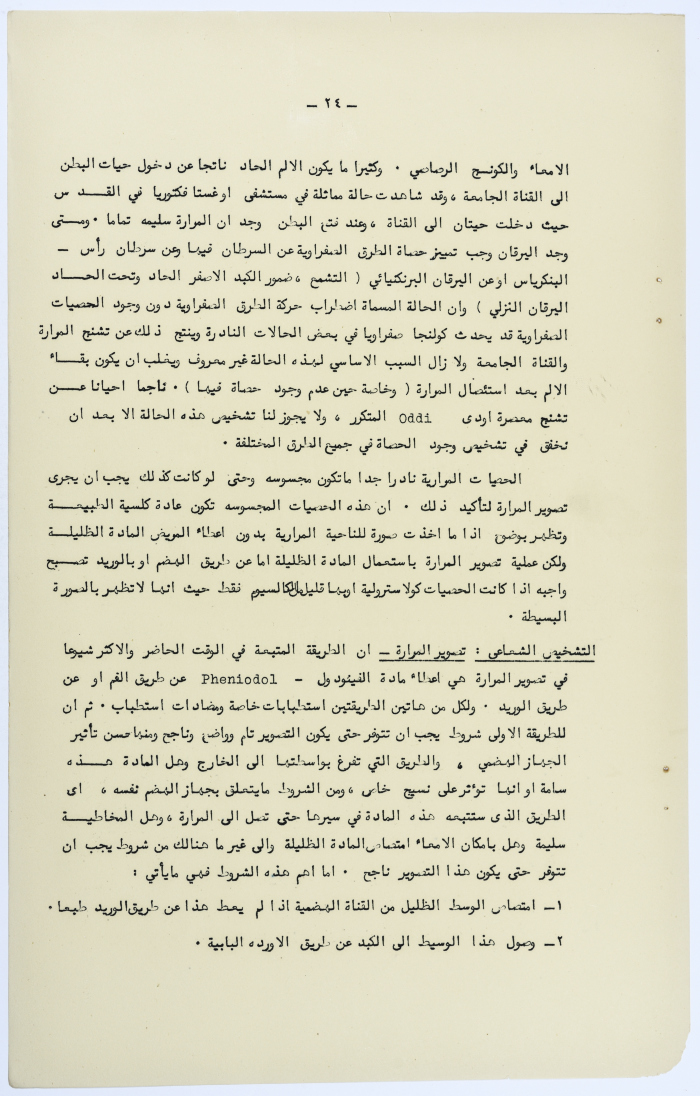 – ٢٤ –
الامعاء والكونسج الرصاصي ٠ وكثيرا ما يكون الالم الحاد ناتجا عن دخول حيات البطن
الى القناة الجامعة ، وقد شاهدت حالة مماثلة في مستشفى اوغستا فكتوريا في القدس
حيث دخلت حيتان الى القناة ، وعند فتح البطن وجد ان المرارة سليمه تماما ٠ ومتى
وجد اليرقان وجب تمييز حصاة الطرق الصفراوية عن السرطان فيها وعن سرطان رأس –
البنكرياس او عن اليرقان البرنكتيائي ( التشمع ، ضمور الكبد الاصفر الحاد وتحت الحاد
اليرقان النزلي ) وان الحالة المسماة اضطراب حركة الطرق الصفراوية دون وجود الحصيات
الصفراوية قد يحدث كولنجا صفراويا في بعض الحالات النادرة وينتج ذلك عن تشنج المرارة
والقناة الجامعة ولا زال السبب الاساسي لهذه الحالة غير معروف ويغلب ان يكون بقاء
الالم بعد استئصال المرارة ( وخاصة حين عدم وجود حصاة فيها ) ٠ ناجما احيانا عن
تشنج معصرة اودى Oddi المتكرر ، ولا يجوز لنا تشخيص هذه الحالة الا بعد ان
نخفق في تشخيص وجود الحصاة في جميع الطرق المختلفة ٠
الحصيات المرارية نادرا جدا ماتكون مجسوسه وحتى لو كانت كذلك يجب ان يجرى
تصوير المرارة لتأكيد ذلك ٠ ان هذه الحصيات المجسوسه تكون عادة كلسية الطبيعة
وتظهر بوضوح اذا ما اخذت صورة للناحية المرارية بدون اعطاء المريض المادة الظليلة
ولكن عملية تصوير المرارة باستعمال المادة الظليلة اما عن طريق الهضم او بالوريد تصبح
واجبه اذا كانت الحصيات كولاسترولية اوبها قليل من الكالسيوم فقط حيث انها لاتظهر بالصورة
البسيطة ٠
التشخيص الشعاعى : تصوير المرارة – ان الطريقة المتبعة في الوقت الحاضر والاكثر شيوعا
في تصوير المرارة هي اعطاء مادة الفينودول – Pheniodol عن طريق الفم او عن
طريق الوريد ٠ ولكل من هاتين الطريقتين استطبابات خاصة ومضادات استطباب ٠ ثم ان
للطريقة الاولى شروط يجب ان تتوفر حتى يكون التصوير تام وواضح وناجح ومنها حسن تأثير
الجهاز الهضمي ، والطريق التي تفرغ بواسطتها الى الخارج وهل المادة هذه
سامة او انها تؤثر على نسيج خاص ، ومن الشروط مايتعلق بجهاز الهضم نفسه ، اى
الطريق الذى ستتبعه هذه المادة في سيرها حتى تصل الى المرارة ، وهل المخاطية
سليمة وهل بامكان الامعاء امتصاص المادة الظليلة والى غير ما هنالك من شروط يجب ان
تتوفر حتى يكون هذا التصوير ناجح ٠ اما اهم هذه الشروط فهي مايأتي :
١– امتصاص الوسط الظليل من القناة الهضمية اذا لم يعط هذا عن طريق الوريد طبعا ٠
٢– وصول هذا الوسيط الى الكبد عن طريق الاورده البابية ٠